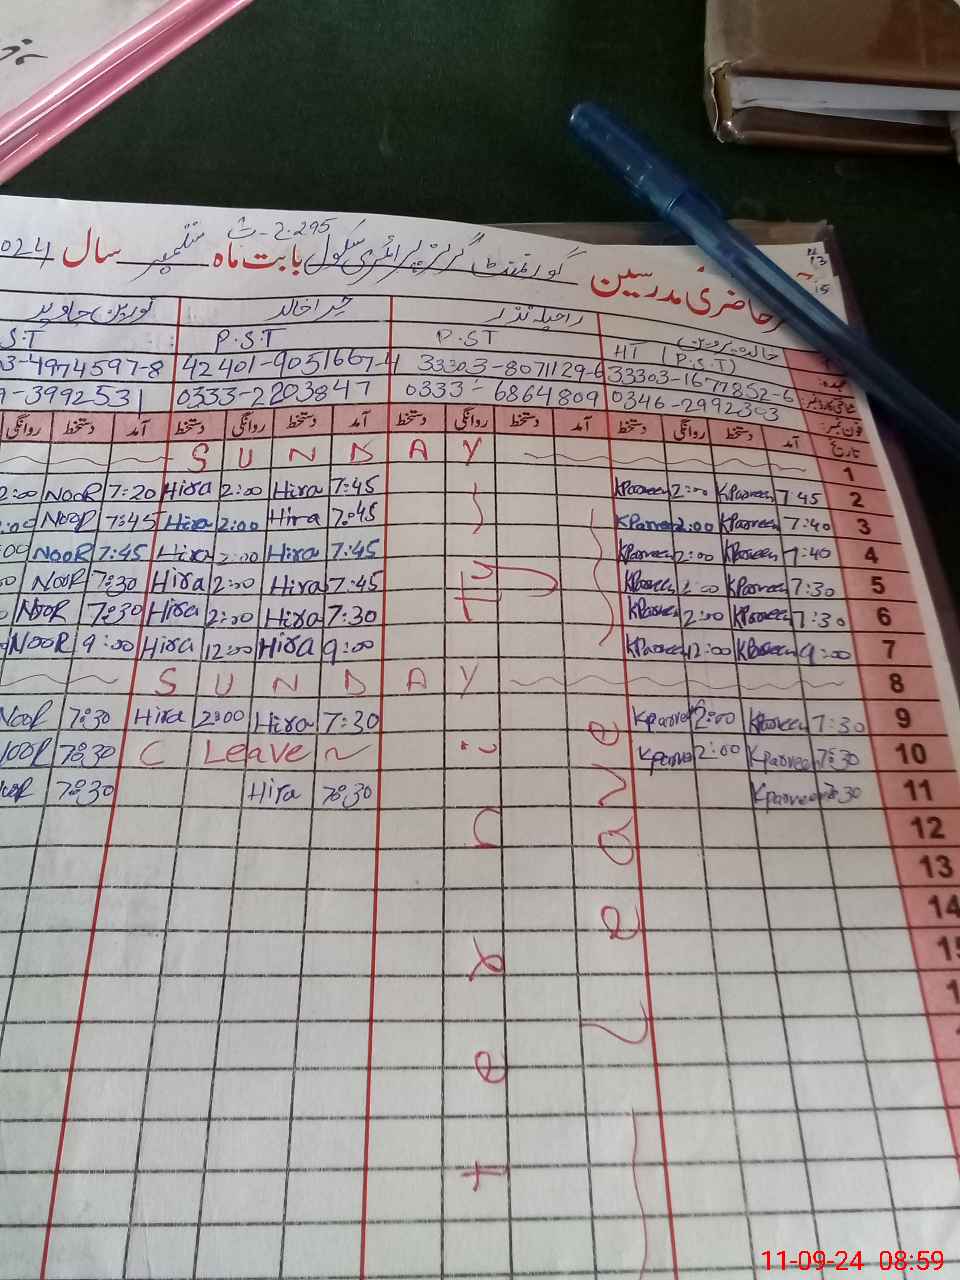 حاضری مدرسین گورنمنٹ گرلز پرائمری سکول 295-2 بابت ماہ ستمبر سال 024
خالدہ پروین راحیلہ نذر حرا خالد نورین جاوید
HT (P.S.T) P.ST P.S.T S.T
33303-1677852-6 33303-8071129-6 42401-9051667-4 3-4974597-8
0346-2992303 0333-6864809 0333-2203847 9-3992531
تاریخ آمد دستخط روانگی دستخط آمد دستخط روانگی دستخط آمد دستخط روانگی دستخط آمد دستخط روانگی
1 SUNDAY
2 7:45 KParveen 2:00 KParveen 7:45 Hira 2:00 Hira 7:20 NOOR 2:00
3 7:40 KParveen 2:00 KParveen 7:45 Hira 2:00 Hira 7:45 NOOR :00
4 7:40 KParveen 2:00 KParveen 7:45 Hira 2:00 Hira 7:45 NOOR 00
5 7:30 KParveen 2:00 KParveen 7:45 Hira 2:00 Hira 7:30 NOOR
6 7:30 KParveen 2:00 KParveen 7:30 Hira 2:00 Hira 7:30 NOOR
7 9:00 KParveen 12:00 KParveen 9:00 Hira 12:00 Hira 9:00 NOOR
8 SUNDAY
9 7:30 KParveen 2:00 KParveen 7:30 Hira 2:00 Hira 7:30 NOOR
10 7:30 KParveen 2:00 KParveen C Leave 7:30 OOR
11 7:30 KParveen 7:30 Hira 7:30
12
13
14
Leave
11-09-24 08:59